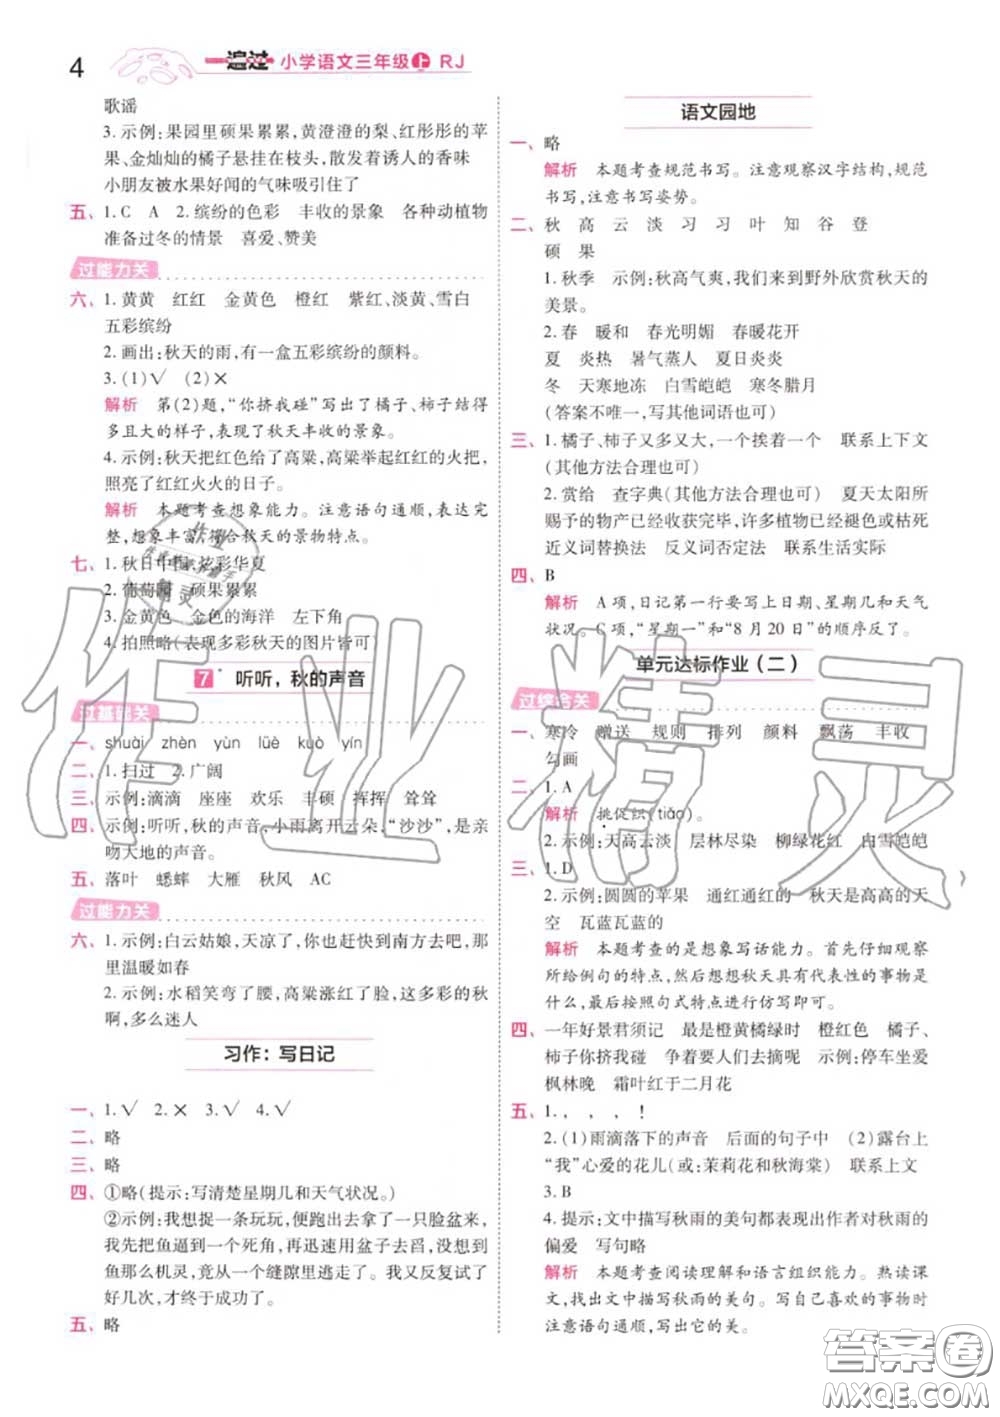 4
一遍过 小学语文三年级上 RJ
歌谣
3. 示例:果园里硕果累累,黄澄澄的梨、红彤彤的苹
果、金灿灿的橘子悬挂在枝头,散发着诱人的香味
小朋友被水果好闻的气味吸引住了
五、1. C A 2. 缤纷的色彩 丰收的景象 各种动植物
准备过冬的情景 喜爱、赞美
过能力关
六、1. 黄黄 红红 金黄色 橙红 紫红、淡黄、雪白
五彩缤纷
2. 画出:秋天的雨,有一盒五彩缤纷的颜料。
3. (1)√ (2)×
解析 第(2)题,“你挤我碰”写出了橘子、柿子结得
多且大的样子,表现了秋天丰收的景象。
4. 示例:秋天把红色给了高粱,高粱举起红红的火把,
照亮了红红火火的日子。
解析 本题考查想象能力。注意语句通顺,描写完
整,想象丰富,符合秋天的景物特点。
七、1. 秋日中国,炫彩华夏
2. 葡萄园 硕果累累
3. 金黄色 金色的海洋 左下角
4. 拍照略(表现多彩秋天的图片皆可)
7 听听,秋的声音
过基础关
一、shuài zhèn yùn lüè kuò yín
二、1. 扫过 2. 广阔
三、示例:滴滴 座座 欢乐 丰硕 挥挥 耸耸
四、示例:听听,秋的声音,小雨离开云朵,“沙沙”,是亲
吻大地的声音。
五、落叶 蟋蟀 大雁 秋风 AC
过能力关
六、1. 示例:白云姑娘,天凉了,你也赶快到南方去吧,那
里温暖如春
2. 示例:水稻笑弯了腰,高粱涨红了脸,这多彩的秋
啊,多么迷人
习作:写日记
一、1. √ 2. × 3. √ 4. √
二、略
三、略
四、①略(提示:写清楚星期几和天气状况。)
②示例:我想捉一条玩玩,便跑出去拿了一只脸盆来,
我先把鱼逼到一个死角,再迅速将脸盆舀过去,没想到
鱼那么机灵,竟从一个缝隙里逃走了。我又反复试了
好几次,才终于成功了。
五、略
语文园地
一、略
解析 本题考查规范书写。注意观察汉字结构,规范
书写,注意书写姿势。
二、秋 高 云 淡 习 习 叶 知 谷 登
硕 果
1. 秋季 示例:秋高气爽,我们来到野外欣赏秋天的
美景。
2. 春 暖和 春光明媚 春暖花开
夏 炎热 暑气蒸人 夏日炎炎
冬 天寒地冻 白雪皑皑 寒冬腊月
(答案不唯一,写其他词语也可)
三、1. 橘子、柿子又多又大,一个挨着一个 联系上下文
(其他方法合理也可)
2. 赏给 查字典(其他方法合理也可) 夏天太阳所
赐予的物产已经收获完毕,许多植物已经褪色或枯死
近义词替换法 反义词否定法 联系生活实际
四、B
解析 A项,日记第一行要写上日期、星期几和天气
状况。C项,“星期一”和“8月20日”的顺序反了。
单元达标作业(二)
过综合关
一、寒冷 赠送 规则 排列 颜料 飘荡 丰收
勾画
二、1. A
解析 挑促织(tiǎo)。
2. 示例:天高云淡 层林尽染 柳绿花红 白雪皑皑
三、1. D
2. 示例:圆圆的苹果 通红通红的 秋天是高高的天
空 瓦蓝瓦蓝的
解析 本题考查的是想象写话能力。首先仔细观察
所给例句的特点,然后想想秋天具有代表性的事物是
什么,最后按照句式特点进行仿写即可。
四、一年好景君须记 最是橙黄橘绿时 橙红色 橘子、
柿子你挤我碰 争着要人们去摘呢 示例:停车坐爱
枫林晚 霜叶红于二月花
五、1. , , , !
2. (1)雨滴落下的声音 后面的句子中 (2)露台上
“我”心爱的花儿(或:茉莉花和秋海棠) 联系上文
3. B
4. 提示:文中描写秋雨的美句都表现出作者对秋雨的
偏爱 写句略
解析 本题考查阅读理解和语言组织能力。熟读课
文,找出文中描写秋雨的美句。写自己喜欢的事物时
注意语句通顺,写出它的美。
作业精灵
答案圈
MXQE.COM